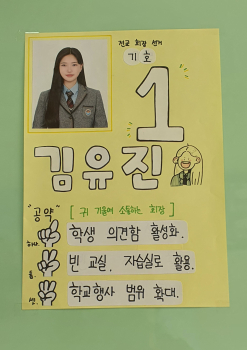 전교 회장 선거
기호
1
김유진
"공약" [ 귀 기울여 소통하는 회장 ]
하나. 학생 의견함 활성화.
둘. 빈 교실, 자습실로 활용.
셋. 학교행사 범위 확대.